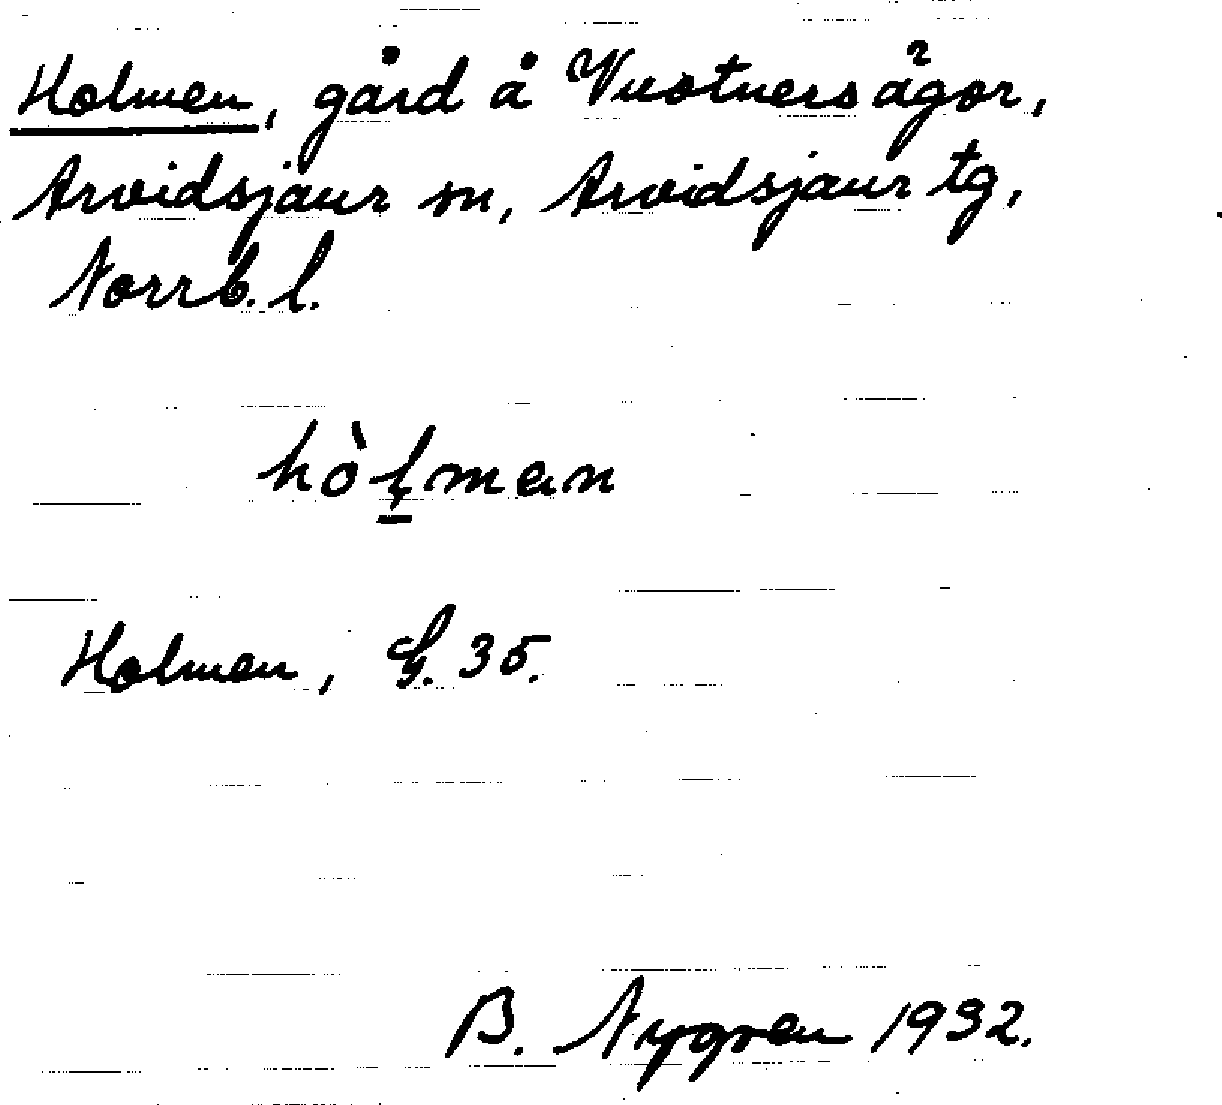 Holmen, gård å Vuotners ägor,
Arvidsjaur sn, Arvidsjaur tg,
Norrb. l.
hòḷman
Holmen, G. 35.
B. Nygren 1932.